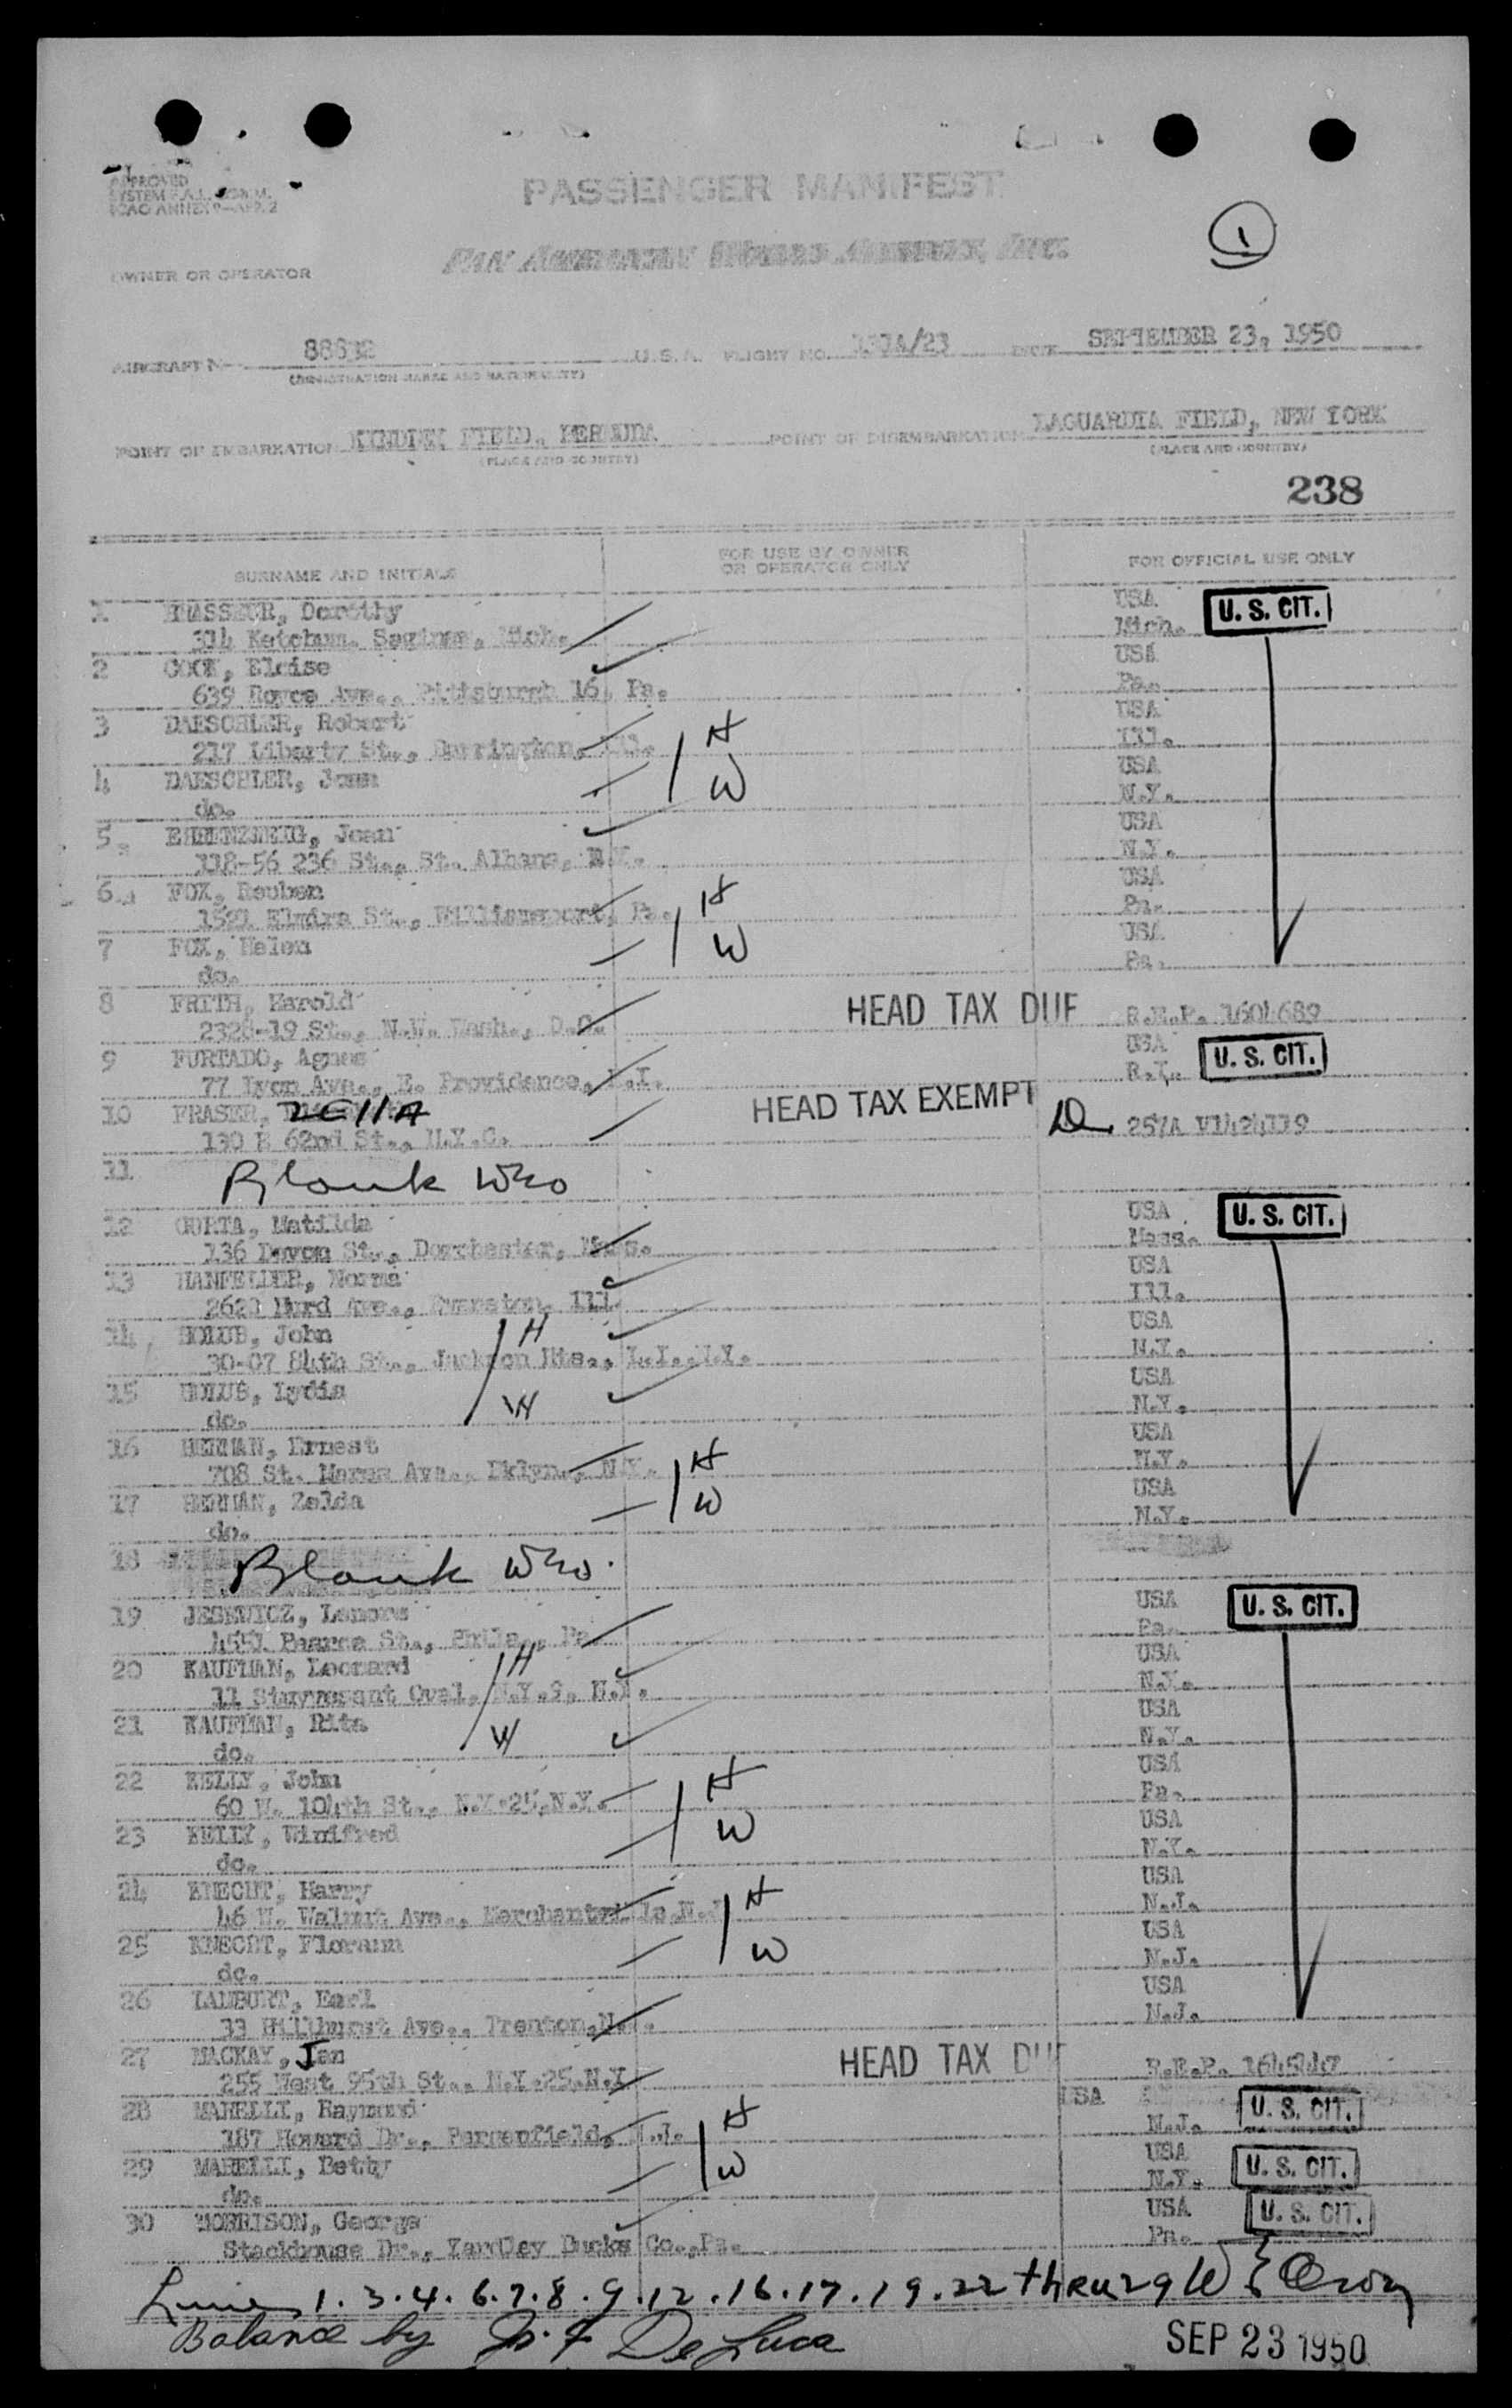 APPROVED
PASSENGER MANIFEST
1
PAN AMERICAN WORLD AIRWAYS, INC.
OWNER OR OPERATOR
AIRCRAFT N- U.S.A. FLIGHT NO. DATE SEPTEMBER 23, 1950
(REGISTRATION MARKS AND NATIONALITY)
POINT OF EMBARKATION KINDLEY FIELD, BERMUDA POINT OF DISEMBARKATION LAGUARDIA FIELD, NEW YORK
(PLACE AND COUNTRY) (PLACE AND COUNTRY)
238
SURNAME AND INITIALS FOR USE BY OWNER OR OPERATOR ONLY FOR OFFICIAL USE ONLY
1 Dorothy USA U. S. CIT.
314 Ketchum, Saginaw, Mich. Mich.
2 COOK, Eloise USA
639 Royce Ave., Pittsburgh 16, Pa. Pa.
3 DAESCHLER, Robert H USA
217 Liberty St., Barrington, Ill. Ill.
4 DAESCHLER, Joan W USA
do. N.Y.
5 Joan USA
118-56 236 St., St. Albans, N.Y. N.Y.
6 FOX, Reuben H USA
1521 Elmira St., Williamsport, Pa. Pa.
7 FOX, Helen W USA
do. Pa.
8 FRITH, Harold HEAD TAX DUE R.E.P. 1604689
2328-19 St., N.W. Wash., D.C.
9 FURTADO, Agnes USA U. S. CIT.
77 Lyon Ave., E. Providence, R.I. R.I.
10 FRASER, ZELLA HEAD TAX EXEMPT 257A V1424119
130 E 62nd St., N.Y.C.
11 Blank
12 Matilda USA U. S. CIT.
136 Devon St., Dorchester, Mass. Mass.
13 HANFELDER, Norma USA
Evanston, Ill. Ill.
14 HOLUB, John H USA
30-07 84th St., Jackson Hts., L.I., N.Y. N.Y.
15 HOLUB, Lydia W USA
do. N.Y.
16 HERMAN, Ernest H USA
708 St. Marks Ave., Bklyn., N.Y. N.Y.
17 HERMAN, Zelda W USA
do. N.Y.
18 Blank
19 JESEWICZ, Lenore USA U. S. CIT.
Pearce St., Phila., Pa. Pa.
20 KAUFMAN, Leonard H USA
11 Stuyvesant Oval, N.Y.9, N.Y. N.Y.
21 KAUFMAN, Rita W USA
do. N.Y.
22 KELLY, John H USA
60 W. 104th St., N.Y.25, N.Y. Pa.
23 KELLY, Winifred W USA
do. N.Y.
24 KNECHT, Harry H USA
46 W. Walnut Ave., Merchantville, N.J. N.J.
25 KNECHT, W USA
do. N.J.
26 Earl USA
33 Hillhurst Ave., Trenton, N.J. N.J.
27 MACKAY, Jan HEAD TAX DUE R.E.P.
255 West 95th St., N.Y.25, N.Y.
28 MARELLI, Raymond H USA U. S. CIT.
187 Howard Dr., N.J. N.J.
29 MARELLI, Betty W USA U. S. CIT.
do. N.Y.
30 MORRISON, George USA U. S. CIT.
Stackhouse Dr., Yardley Bucks Co., Pa. Pa.
Lines 1.3.4.6.7.8.9.12.16.17.19.22 thru 29
Balance by De Luca
SEP 23 1950